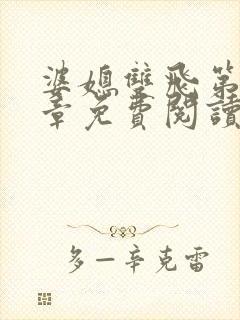 婆媳雙飛第
章免費閱讀
多一辛克雷